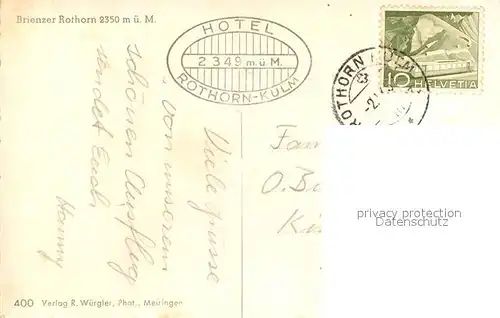 Brienzer Rothorn 2350 m ü. M.
HOTEL
2349 m.ü.M.
ROTHORN-KULM
10 HELVETIA
ROTHORN KULM
-2.
Viele Grüsse
von unserem
schönen Ausflug
sendet Euch
Hanny
Fam
O. B
K
privacy protection
watermark
400 Verlag R. Würgler, Phot., Meiringen